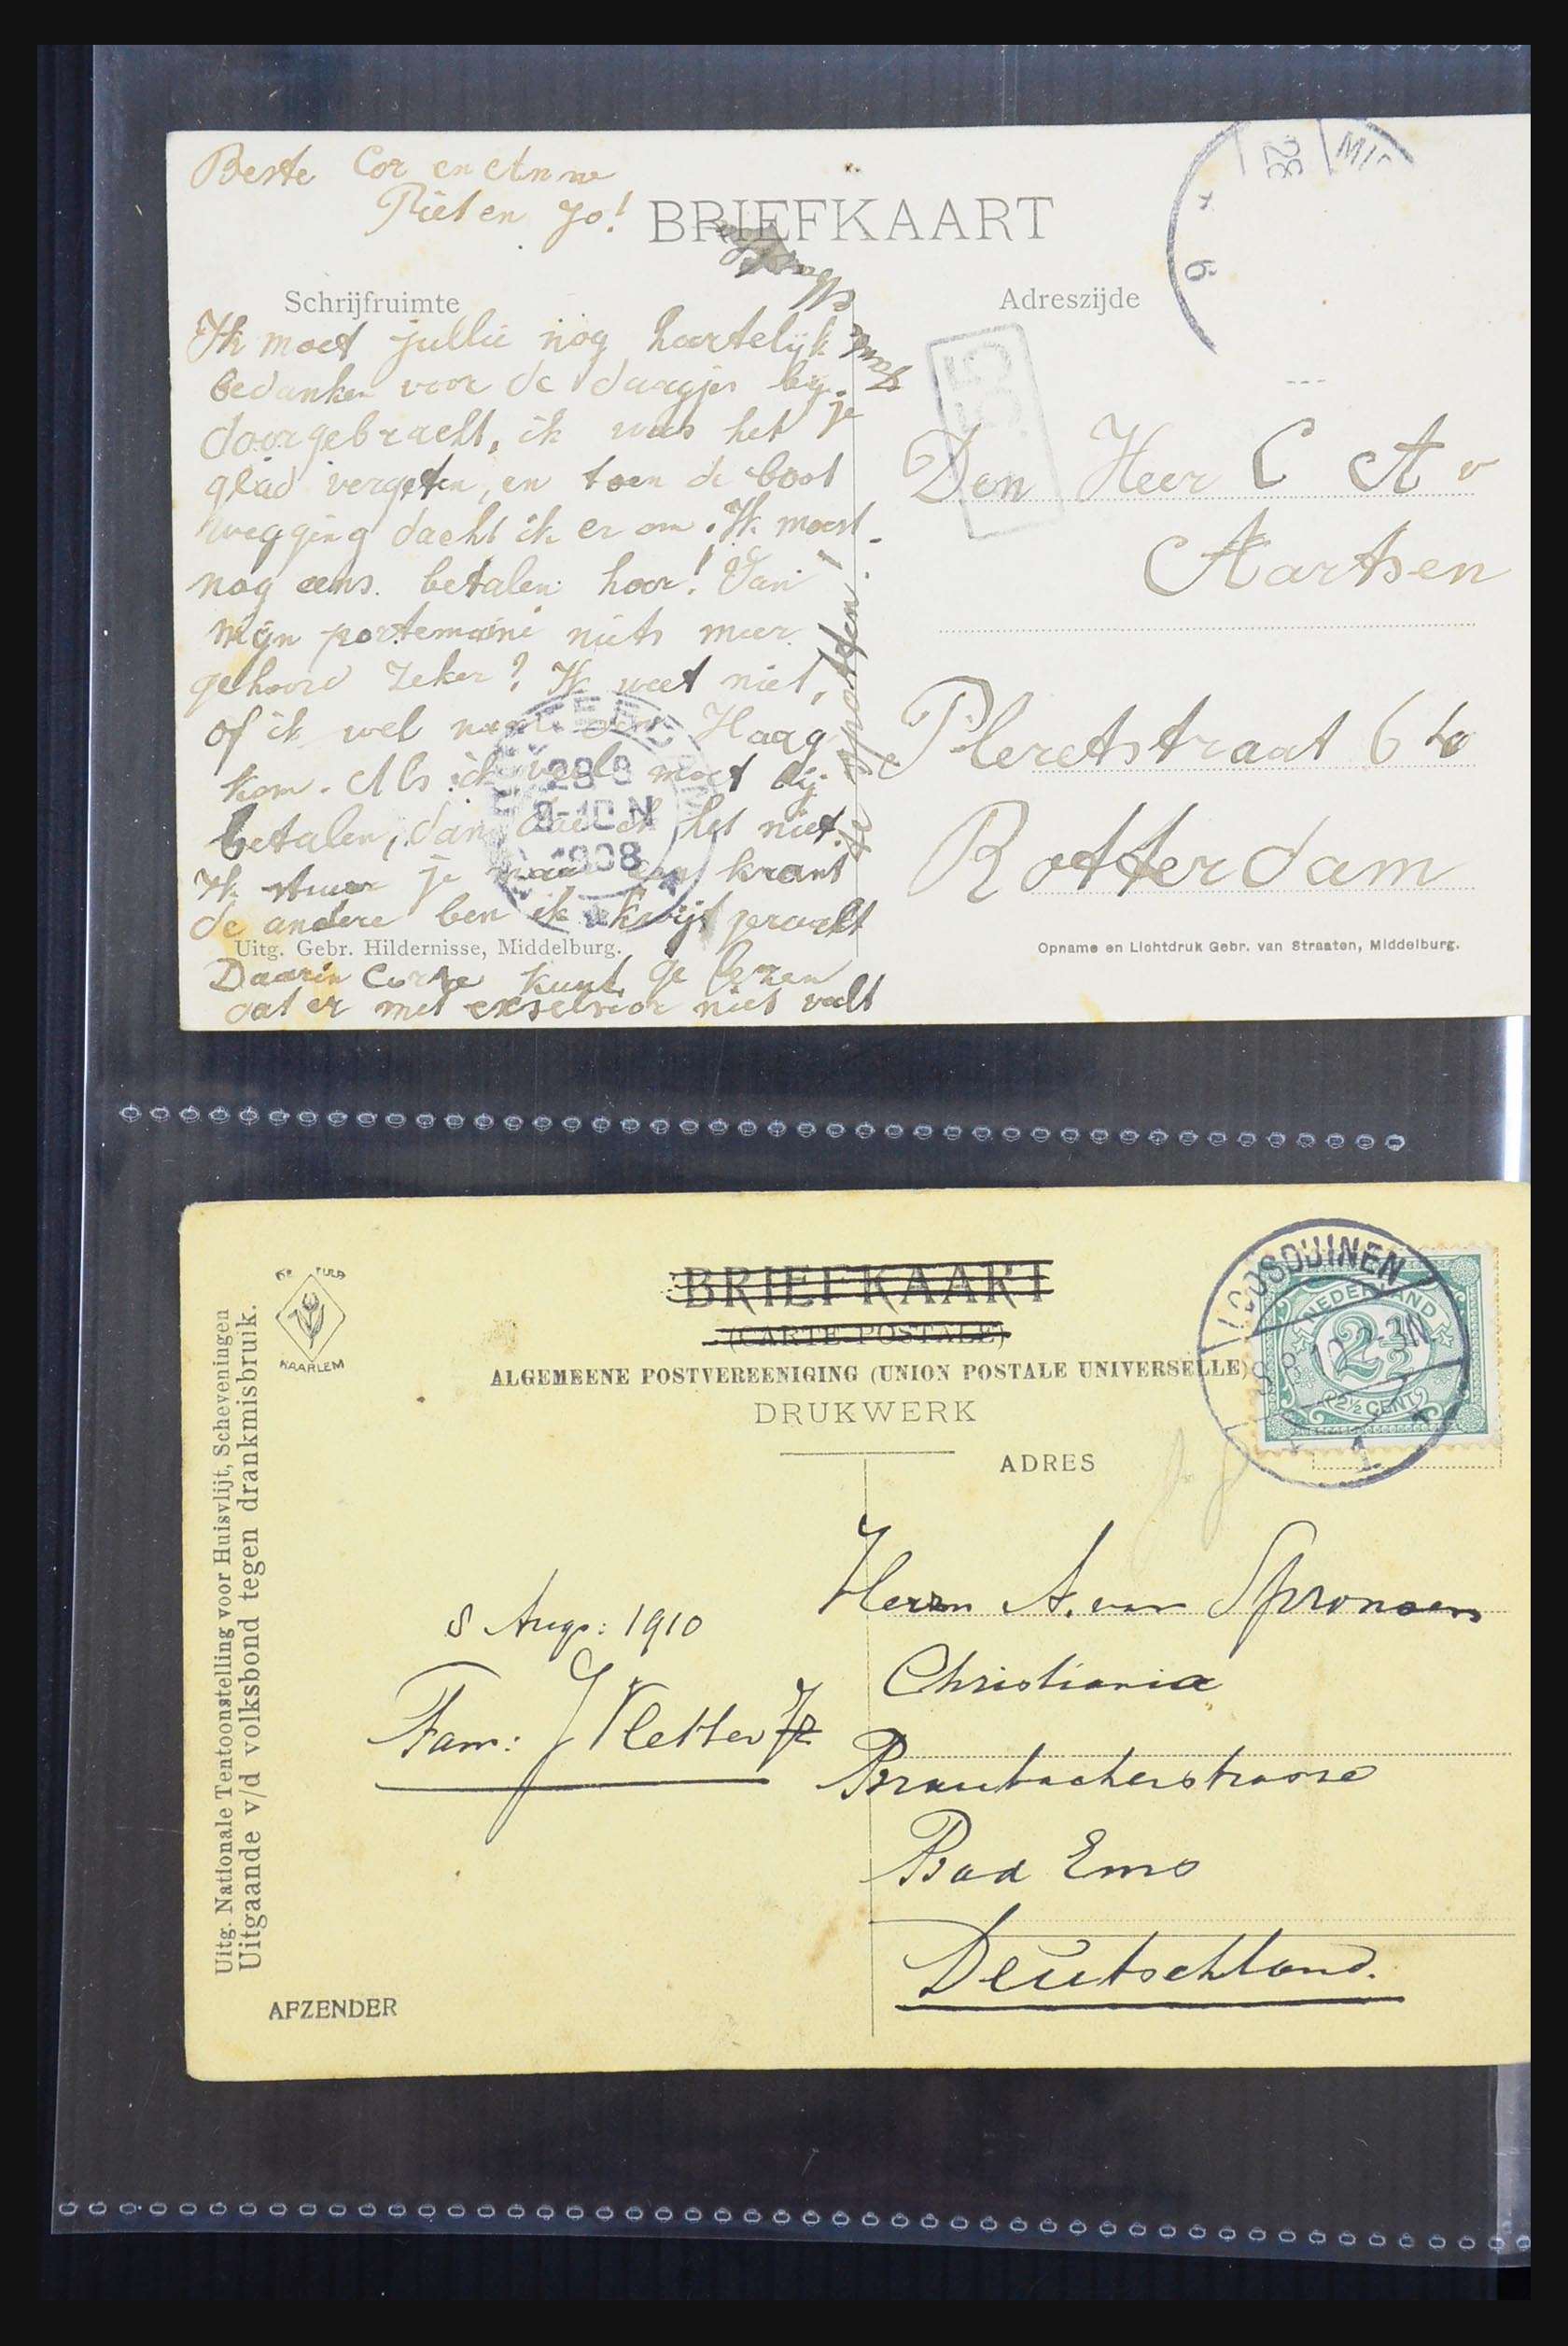 Beste Cor en Anna
Piet en Jo!
BRIEFKAART
Schrijfruimte
Adreszijde
Ik moet jullie nog hartelijk
bedanken voor de dargjes bij je
doorgebracht, ik was het
glad vergeten, en toen de boot
wegging dacht ik er om. Ik moest
nog eens betalen hoor! Van
mijn portemaine niets meer
gehoord zeker? Ik weet niet,
of ik wel naar den Haag
kom. Als ik veel moet bij
betalen, dan doe ik het niet.
Ik stuur je maar een krant
de andere ben ik kwijt geraakt
Daarin Corre kunt ge lezen
dat er met exselsior niet valt
te spotten!
Den Heer C A v
Aartsen
Pleretstraat 6
Rotterdam
28
MID
6
28 8
8-10 N
1908
Uitg. Gebr. Hildernisse, Middelburg.
Opname en Lichtdruk Gebr. van Straaten, Middelburg.
DE TULP
HAARLEM
BRIEFKAART
(CARTE POSTALE)
ALGEMEENE POSTVEREENIGING (UNION POSTALE UNIVERSELLE)
DRUKWERK
ADRES
LOOSDUINEN
2-3N
1
NEDERLAND
2½
2½ CENT
Uitg. Nationale Tentoonstelling voor Huisvlijt, Scheveningen
Uitgaande v/d volksbond tegen drankmisbruik.
8 Aug: 1910
Fam: J Vletter Jz
Herrn A. van Spronsen
Christiania
Braubacherstrasse
Bad Ems
Deutschland.
AFZENDER